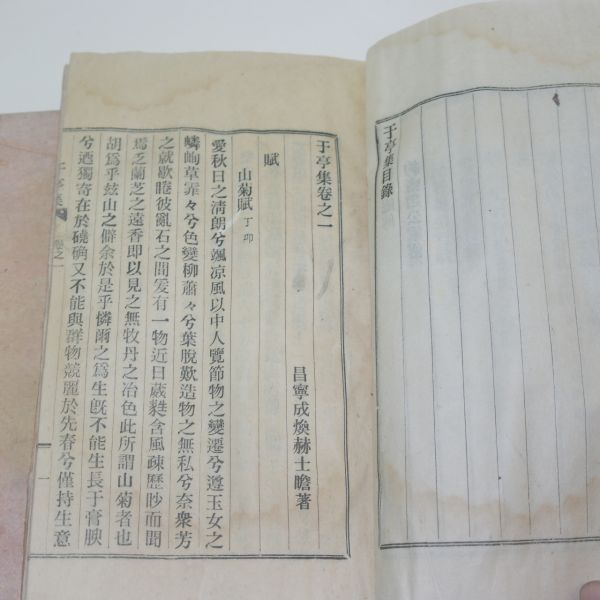 于亭集目錄
于亭集卷之一
昌寧成煥赫士瞻著
賦
山菊賦 丁卯
愛秋日之淸朗兮颯凉風以中人覽節物之變遷兮遵玉女之
嶙峋草霏々兮色變柳蕭々兮葉脫歎造物之無私兮奈衆芳
之就歇睠彼亂石之間爰有一物近日葳蕤含風疎歷眇而聞
焉乏蘭芝之遠香即以見之無牧丹之冶色此所謂山菊者也
胡爲乎玆山之僻余於是乎憐爾之爲生旣不能生長于膏腴
兮迺獨寄在於磽确又不能與群物競麗於先春兮僅持生意
于亭集 卷之一
一